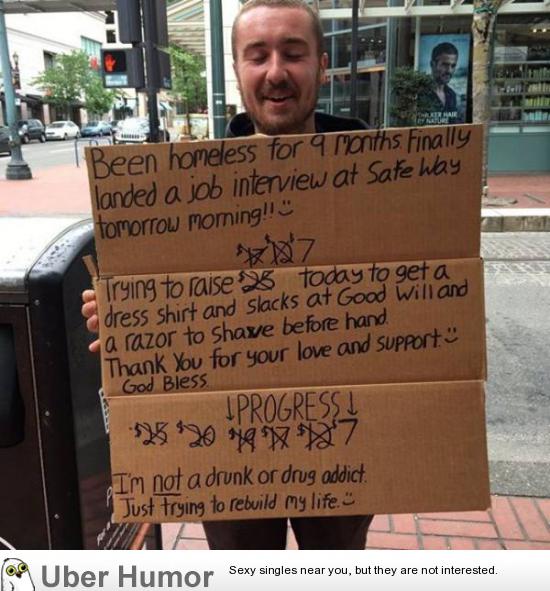 Been homeless for 9 Months. Finally
landed a job interview at Safe Way
tomorrow morning!!
$17 $12 7
Trying to raise $25 today to get a
dress shirt and slacks at Good Will and
a razor to shave before hand.
Thank You for your love and support
God Bless
↓PROGRESS↓
$25 $20 $19 $17 $12 7
I'm not a drunk or drug addict.
Just trying to rebuild my life.
BY NATURE
Uber Humor
Sexy singles near you, but they are not interested.